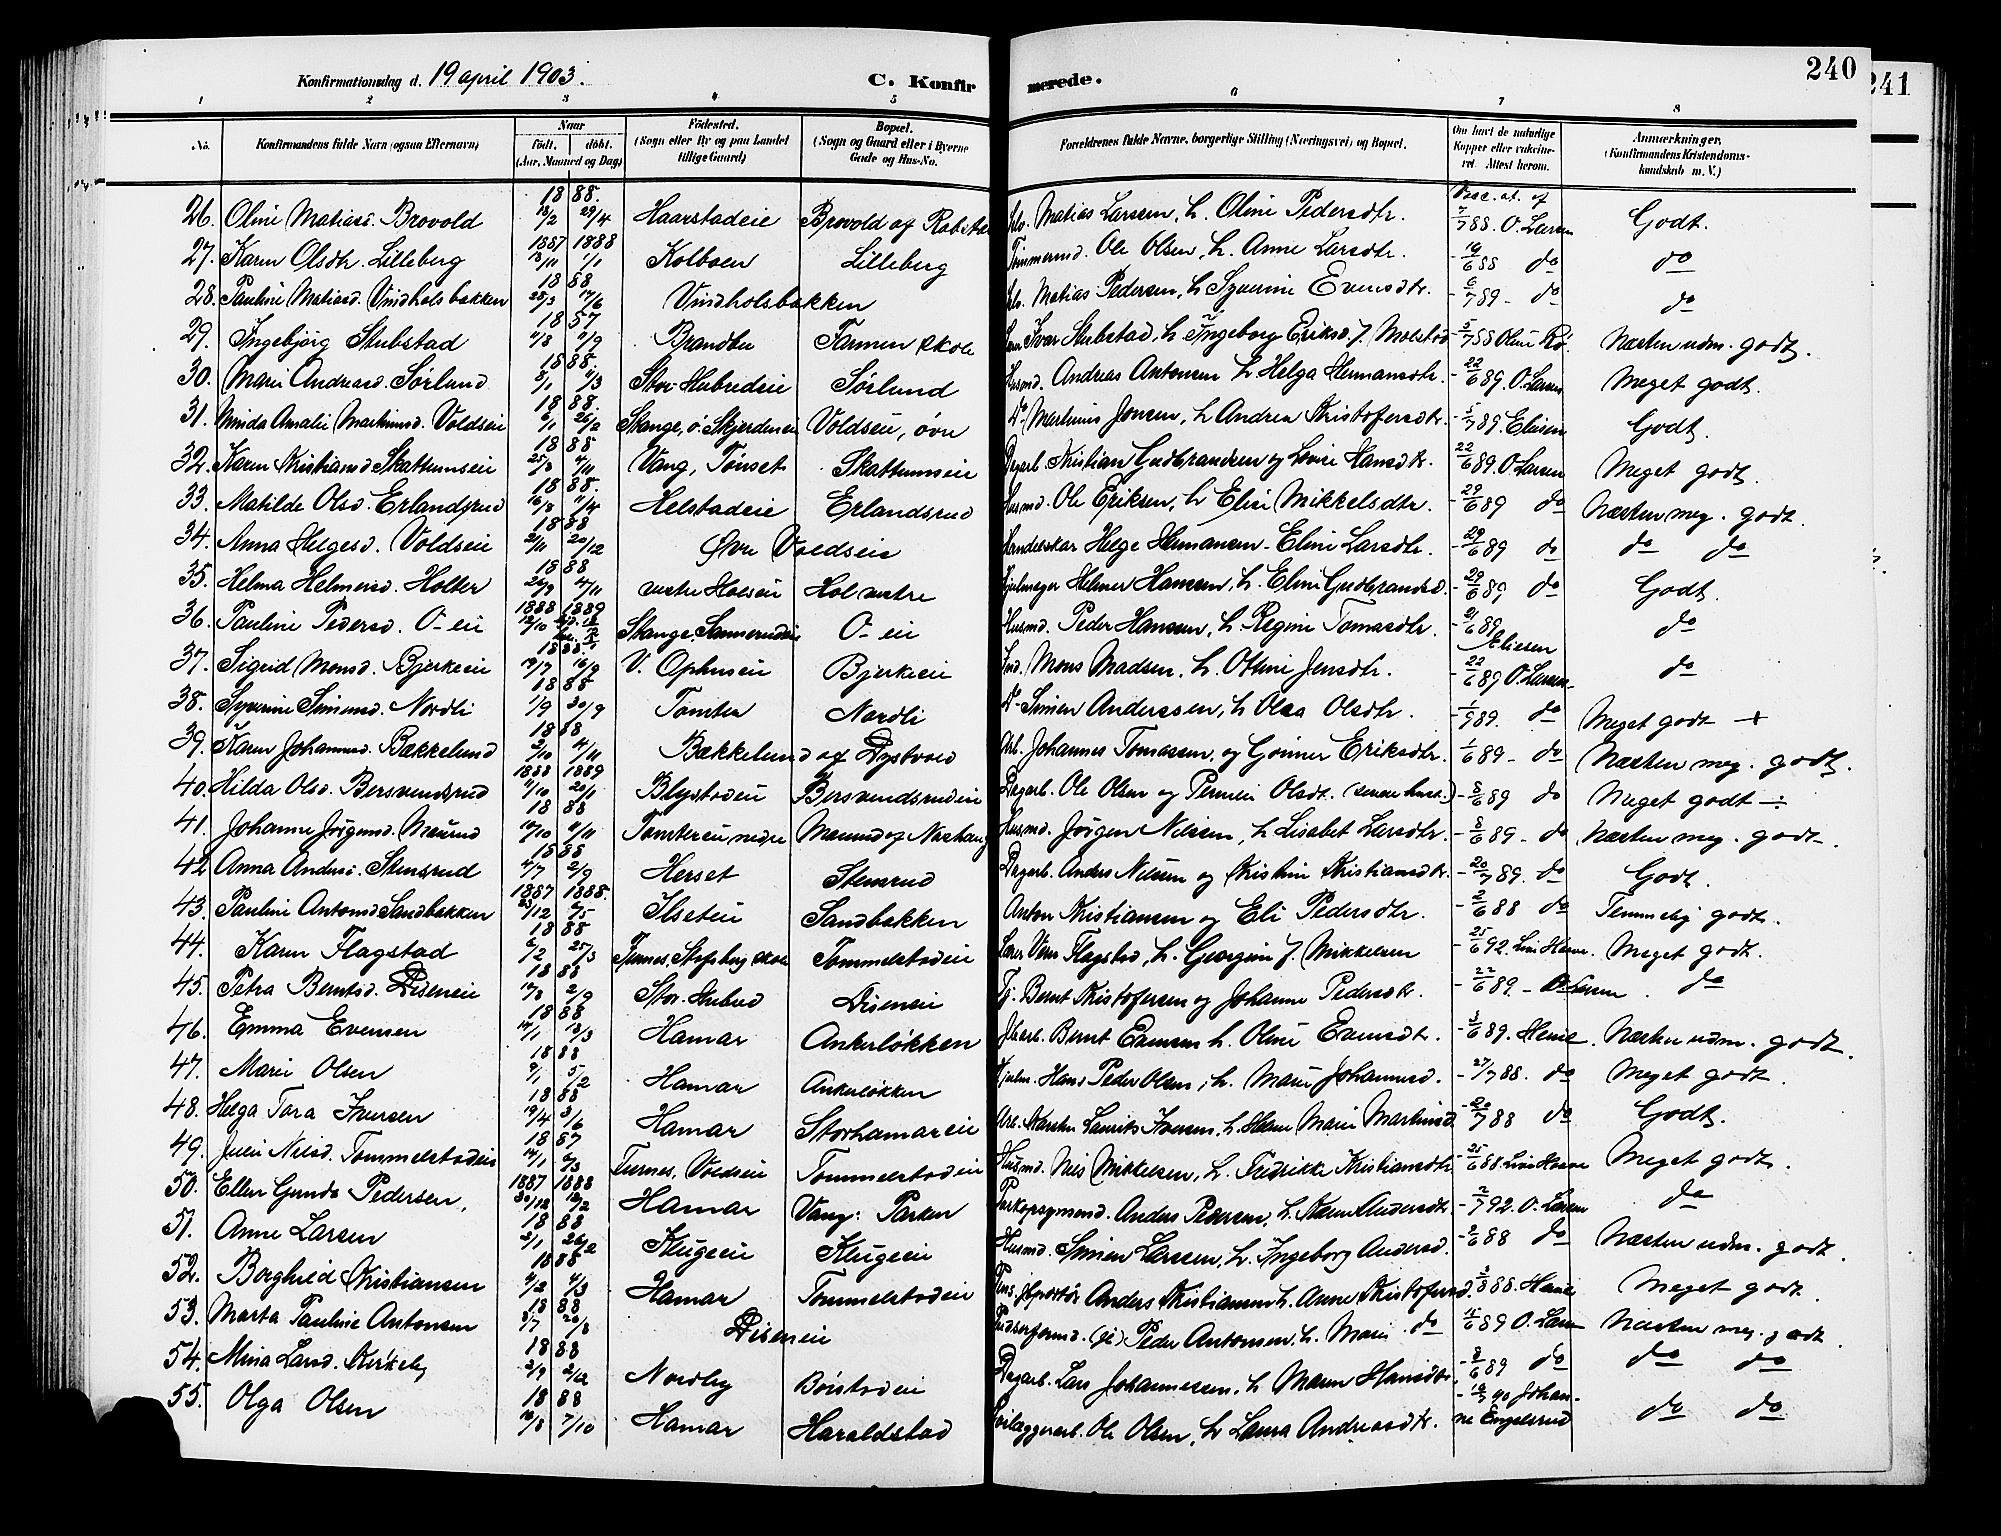 240
241
Konfirmationsdag d. 19 april 1903.
C. Konfirmerede.
1 2 3 4 5 6 7 8
No. Konfirmandens fulde Navn (ogsaa Efternavn) Naar født. døbt. (Aar, Maaned og Dag) Fødested. (Sogn eller By og paa Landet tillige Gaard) Bopæl. (Sogn og Gaard eller i Byerne Gade og Hus-No. Forældrenes fulde Navne, borgerlige Stilling (Næringsvei) og Bopæl. Om havt de naturlige Kopper eller vaccineret. Attest herom. Anmærkninger. (Konfirmandens Kristendomskundskab m. V.)
26. Oline Matiasd. Brovold 1888. 18/2 29/4 Haarstadeie Brovold af Matias Larssen, h. Oline Pedersdtr. Vac. at. af 7/7 88. O. Larsen Godt.
27. Karen Olsdtr. Lilleberg 1887 1888 13/11 1/1 Kolboen Lilleberg Tømmermd. Ole Olsen, h. Anne Larsdtr. 19/6 88 do do
28. Pauline Matiasd. Vindholsbakken 1888 28/3 17/6 Vindholsbakken Matias Pedersen, h. Syverine Evensdtr. 6/7 89 - do do
29. Ingebjørg Stubstad 1887 4/8 11/9 Brandbu Farmen skole Ivar Stubstad, h. Ingeborg Eriksd. f. Molstad 5/7 88 Oline Næsten udm. godt.
30. Marie Andreasd. Sørlund 1888. 8/1 4/3 Stor-Hubredeie Sørlund Husmd. Andreas Antonsen h. Helga Hermansdtr. 22/6 89. O. Larsen Meget godt.
31. Minda Amalie Martinusd. Voldseie 1888. 6/1 26/2 Stange, ø. Skjerdeneie Voldseie, øvre Do Martinus Jonsen, h. Andrea Kristofersdtr. 5/7 89. Eliesen Godt.
32. Karen Kristiansd Skattumseie 1888 25/8 4/11 Vang, Tønset Skattumseie Dagarb. Kristian Gudbrandsen og Lovise Hansdtr. 22/6 89. O. Larsen Meget godt.
33. Matilde Olsd. Erlandsrud 1888. 16/3 11/4 Helstadeie Erlandsrud Husmd. Ole Eriksen, h. Eline Mikkelsdtr. 29/6 89 do Næsten meg. godt.
34. Anna Helgesd. Voldseie 1888 2/11 20/12 Øvre Voldseie Handelskar Helge Hermansen - Eline Larsdtr. 29/6 89 do do do
35. Helma Helmersd. Holter 1888 26/9 4/11 vestre Holseie Hol vestre Hjulmager Helmer Hansen, h. Eline Gudbrandsd. 29/6 89 do Godt.
36. Pauline Pedersd. O-eie 1888 1889 12/10 Stange, Sannerudeie O-eie Husmd. Peder Hansen, h. Regine Tomasdtr. 21/6 89 Eliesen do
37. Sigrid Monsd. Bjerkeeie 1888. 19/7 16/9 V. Ophuseie Bjerkeeie Ind. Mons Madsen, h. Ottine Jensdtr. 22/6 89 O. Larsen do
38. Syverine Simensd. Nordli 1888 1/9 30/9 Tomter Nordli Do Simen Anderssen, h. Olea Olsdtr. 1/9 89. do Meget godt +
39. Karen Johannesd. Bækkelund 1888 2/10 4/11 Bækkelund af Dystvold Arb. Johannes Tomassen, og Gorine Eriksdtr. 1/6 89 - do Næsten meg. godt.
40. Hilda Olsd. Bersvendsrud 1888 1889 11/10 20/1 Blystadeie Bersvendsrudeie Dagarb. Ole Olsen og Pernelie Olsdt. (senere hust.) 8/6 89 do Meget godt ÷
41. Johanne Jørgensd. Maurud 1888 10/10 4/11 Tomtereie, nedre Maurud af Næshaug Husmd. Jørgen Nilsen, h. Lisabet Larsdtr. 8/6 89 - do Næsten meg. godt.
42 Anna Andersd. Stensrud 1888 4/7 2/9 Herset Stensrud Dagarb. Anders Nilsen og Kristine Kristiansdtr. 20/7 89. do Godt.
43. Pauline Antonsd Sandbakken 1887 1888. 23/12 6/5 Ilseteie Sandbakken Anton Kristiansen og Eli Pedersdtr. 2/6 88 do Temmelig godt.
44. Karen Flagstad 1888 6/2 25/3 Furnes, Stafsberg skole Tommelstadeie Lærer Flagstad, h. Georgine f. Mikkelsen 25/6 92. Meget godt.
45. Petra Berntsd. Diseneie 1888 19/8 2/9 Stor-Hubred Diseneie Tj. Bernt Kristofersen og Johanne Pedersdtr. 22/6 89. - O. Larsen do
46. Emma Evensen 1888 14/1 18/3 Hamar Ankerløkken Jbarb. Bernt Evensen h. Oline Evensdtr. 3/6 89. Heие Næsten udm. godt.
47. Marie Olsen 1888 9/1 5/2 Hamar Ankerløkken Hjulm. Hans Peder Olsen, h. Marie Johannesd. 27/7 88. do Meget godt.
48. Helga Tora Iversen 1888 19/4 3/6 Hamar Storhamareie Arb. Karsten Laurits Iversen, h. Helene Marie Martinsd. 20/7 88 do Godt.
49. Julie Nilsd. Tommelstadeie 1887 14/1 6/3 Furnes, Voldseie Tommelstadeie Husmd. Nils Mikkelsen, h. Fredrikke Kristiansdtr. 25/6 88. Meget godt.
50. Ellen Gunda Pedersen, 1887 1888 30/12 12/2 Hamar Vang: Parken Parkopsynsmd. Anders Pedersen, h. Karen Andersdtr. 2/7 92. O. Larsen do
51. Anne Larsen 1888 2/1 26/2 Klugeeie Klugeeie Husmd. Simen Larssen, h. Ingeborg Andersd. 2/6 88 do Næsten udm. godt.
52. Borghild Kristiansen 1888 4/2 4/3 Hamar Tommelstadeie Anders Kristiansen h. Anne Kristofersd. 3/8 88. Meget godt.
53. Marta Pauline Antonsen 1888 8/7 20/8 Diseneie Peder Antonsen, h. Marie do 15/6 89 O. Larsen Næsten meg. godt.
54. Mina Larsd. Kirkeby 1888 2/9 2/12 Nordby Børstadeie Dagarb. Lars Johannessen, h. Maren Hansdtr. 8/6 89 do do do
55. Olga Olsen 1888 19/8 7/10 Hamar Haraldstad Ole Olsen, h. Laura Andreasdtr. 90 Johanne Engelsrud do do